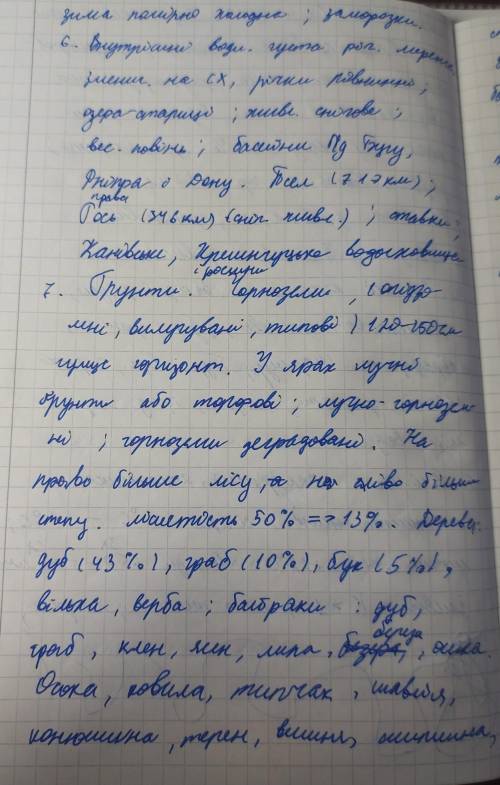 зима помірно холодна ; заморозки.
6. Внутрішні води. густа річ. мережа.
зменш. на СХ, річки рівнинні ;
озера-стариці ; живл. снігове ;
вес. повінь ; басейни Пд Бугу,
Дніпра і Дону. Псел (717 км) ;
права
Рось (346 км) (сніг. живл.) ; ставки ;
Канівське, Кременчуцьке водосховища
і розшири
7. Ґрунти. Чорноземи, (опідзо-
лені, вилугувані, типові) 120-150 см
гумус горизонт. У ярах лучні
ґрунти або торфові ; лучно-чорнозем
ні ; чорноземи деградовані. На
право більше лісу, а на ліво більше
степу. лісистість 50% => 13%. Дерева:
дуб (43%), граб (10%), бук (5%),
вільха, верба ; байраки : дуб,
береза
граб, клен, ясен, липа, осика.
Осока, ковила, типчак, шавлія,
конюшина, терен, вишня, шипшина,